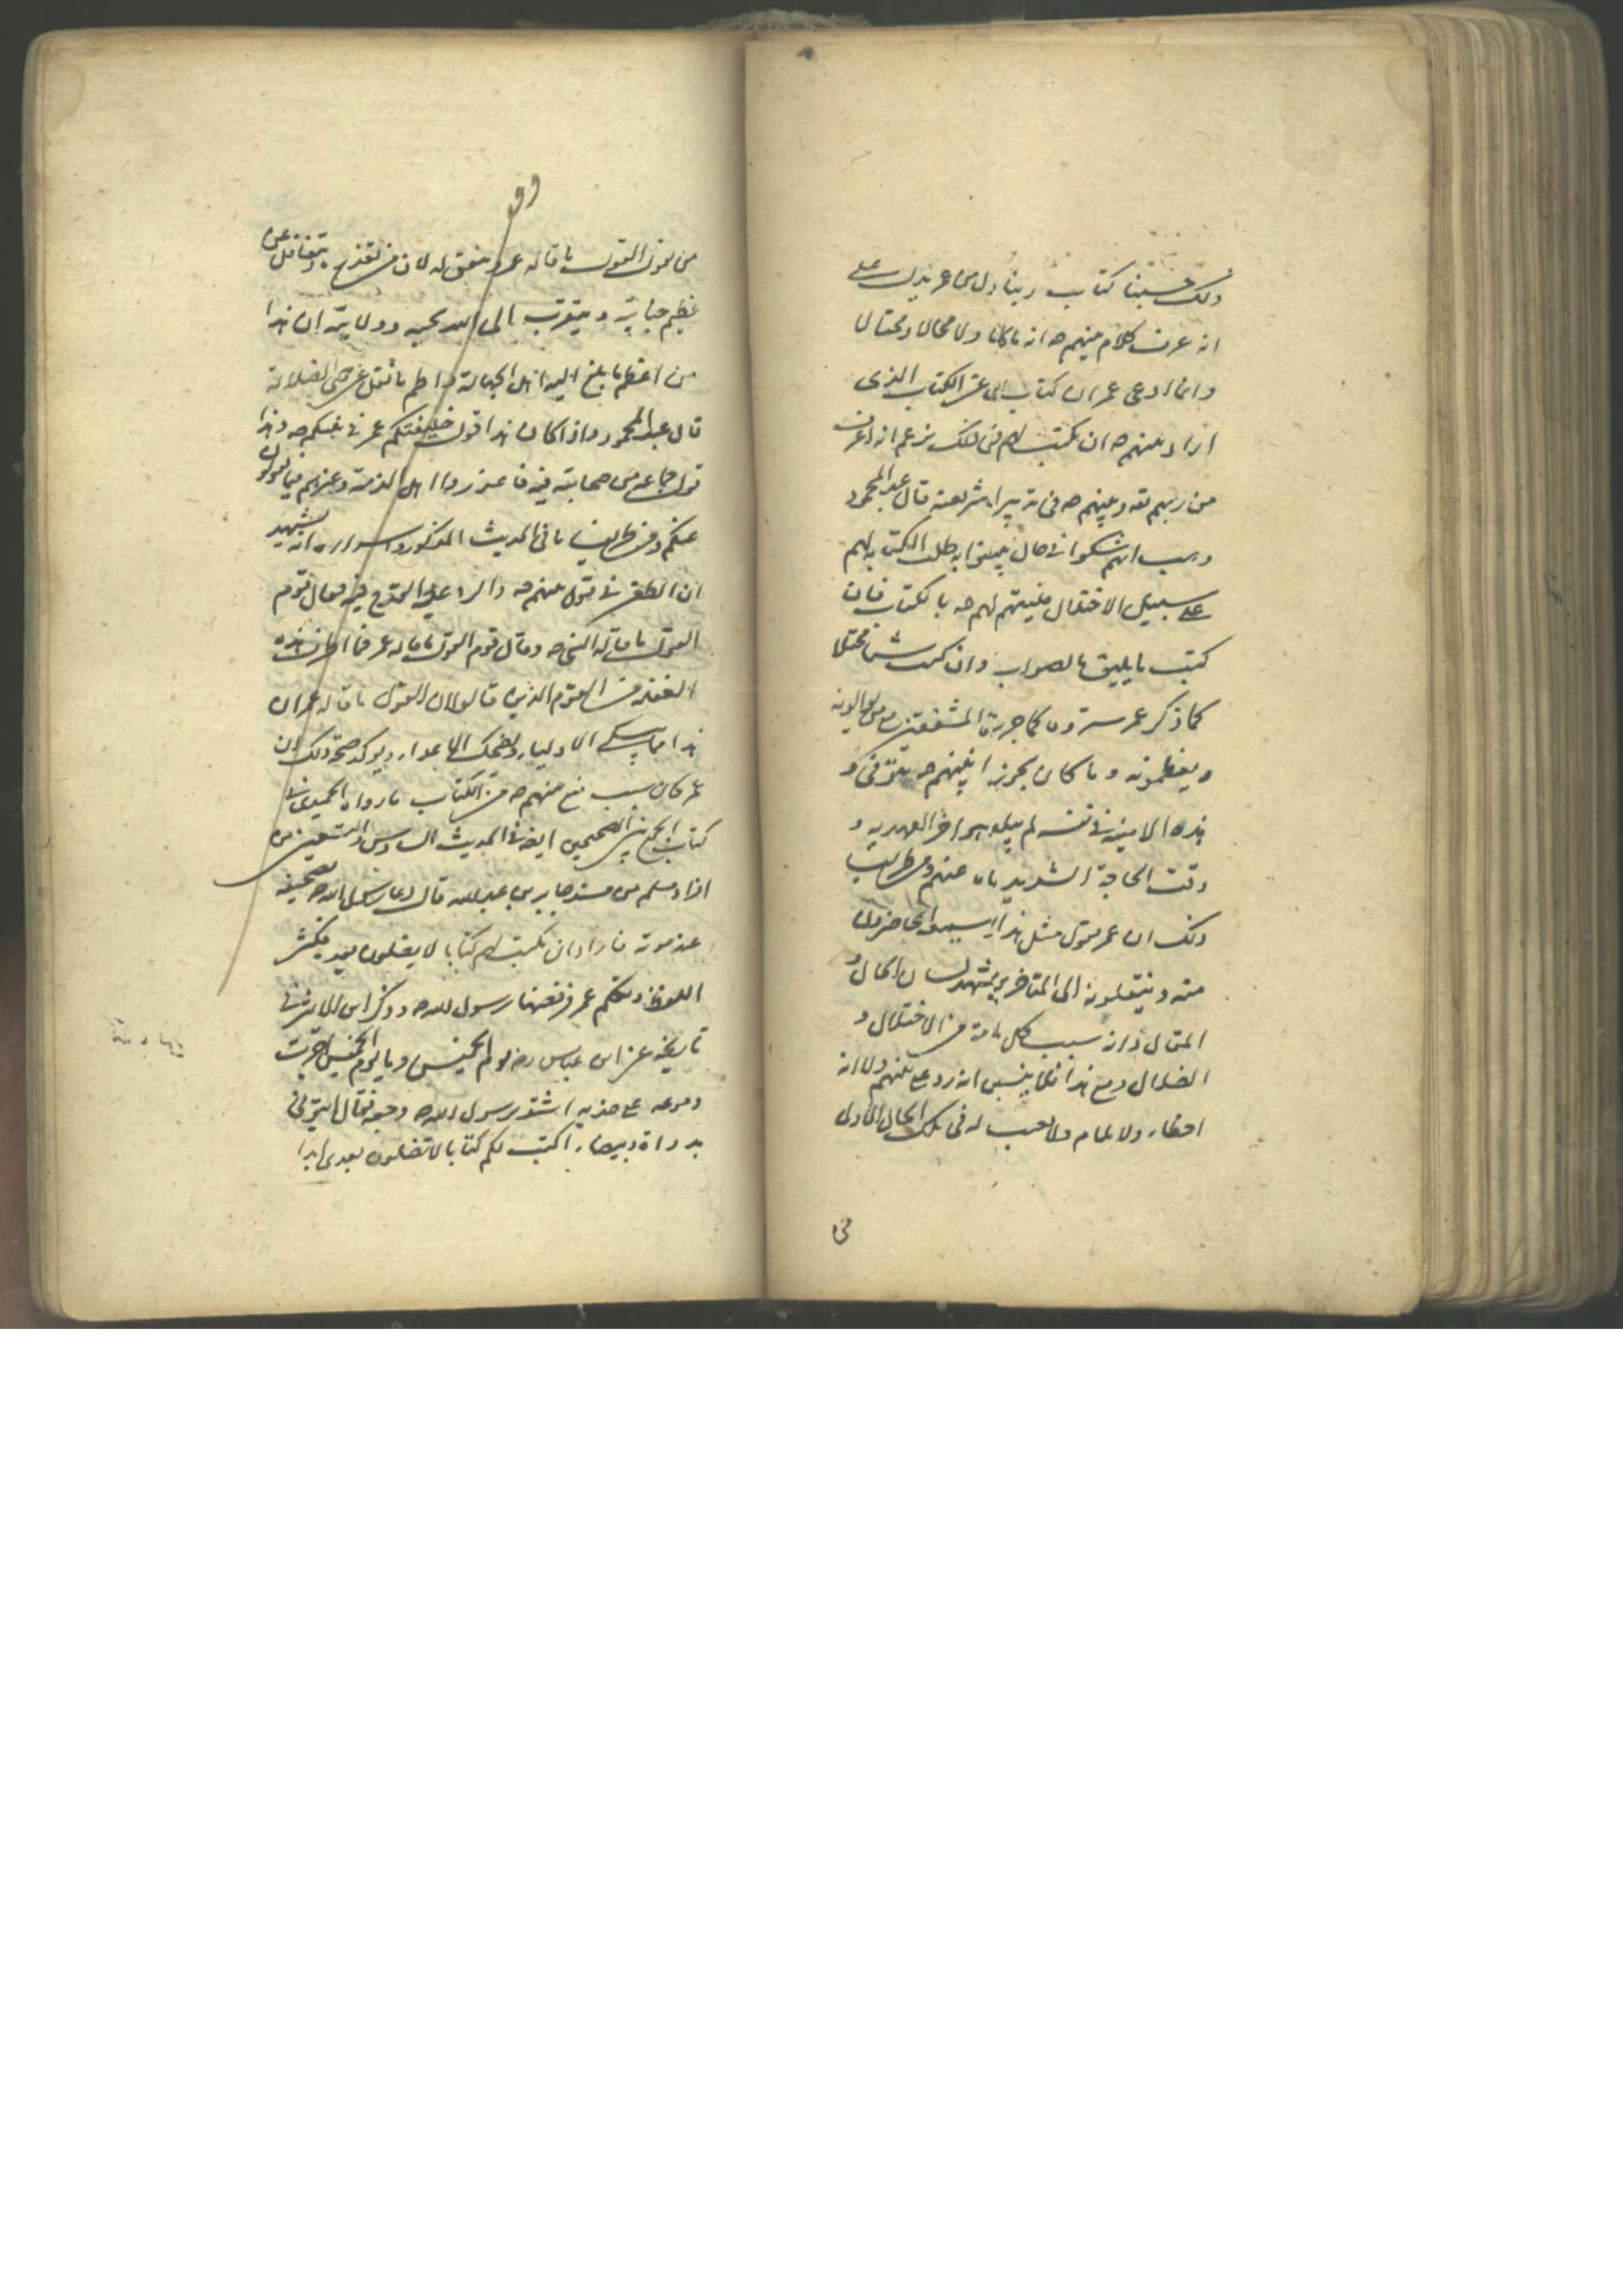 ذلك حسبنا كتاب ربنا دل من عمر يدل على
انه عرف كلام نبيهم صه انه ما كان ولا محالا ومختالا
وانما ادعى عمر ان كتاب الله عن الكتاب الذى
اراد نبيهم صه ان يكتب لهم فى ذلك يزعم انه اعرف
من ربهم تعه ونبيهم صه فى تدبير الشريعة قال عبد المحمود
وهب انهم شكوا فى حال نبيهم انه طلب الكتابة لهم
على سبيل الاختلال فليتهم لهم صه بالكتاب فان
كتب ما يليق بالصواب وان كتب شيئا مختلا
كما ذكر عمر ستروه كما جرت المشفقين من يوالونه
ويعظمونه وما كان يجوز ان نبيهم صه يتوفى و
هذه الامنية فى نفسه لم يبلغوه اخر العهد به و
وقت الحاجة الشديد بان عنهم ومن طرايف
ذلك ان عمر يقول مثل هذا يسمعه الحاضرون
منه وينقلونه الى المتاخرين يشهد لسان الحال و
المقال وانه سبب كل ما حدث من الاختلال و
الضلال ومع هذا فلا ينسبن انه رد على نبيهم ولا انه
اخطاء ولا يلام ولا يعيب له فى تلك الحال الاولى
فى
من يقول القول ما قاله عمر وينفق له لان من يقدح يتغافل عن
عظيم جنايته ويتقرب الى الله بحبه وولايته ان هذا
من اعظم ما بلغ اليه اهل الجهالة واطم ما نقل عن الضلالة
قال عبد المحمود واذا كان هذا قول خليفتكم عمر فى نبيكم صه وهذا
قول جماعة من صحابته فيه فاعذروا اهل الذمة وغيرهم فيما يقولون
عنكم ومن طرايف ما فى الحديث المذكور واسراره انه يشهد
ان الطعن فى قول نبيهم صه والرد عليه القدح فيه فقال قوم
القول ما قاله النبى صه وقال قوم القول ما قاله عمر فما اطرف هذه
الغفلة من القوم الذين قالوا لان القول ما قاله عمر ان
هذا مما يبكى الاولياء ويضحك الاعداء ويوكد صحة ذلك ان
عمر كان سبب منع نبيهم صه من الكتاب ما رواه الحميدى فى
كتاب الجمع بين الصحيحين ايضه فى الحديث السادس والتسعين من
افراد مسلم من مسند جابر بن عبد الله قال دعا رسول الله صه بصحيفة
عند موته فاراد ان يكتب لهم كتابا لا يضلون بعده فكثر
اللغط وتكلم عمر فرفضها رسول الله صه وذكر ابن الاثير فى
تاريخه عن ابن عباس رضه يوم الخميس وما يوم الخميس جرت
دموعه على خديه اشتد برسول الله صه وجعه فقال ايتونى
بدواة وبيضاء اكتب لكم كتابا لا تضلون بعدى ابدا